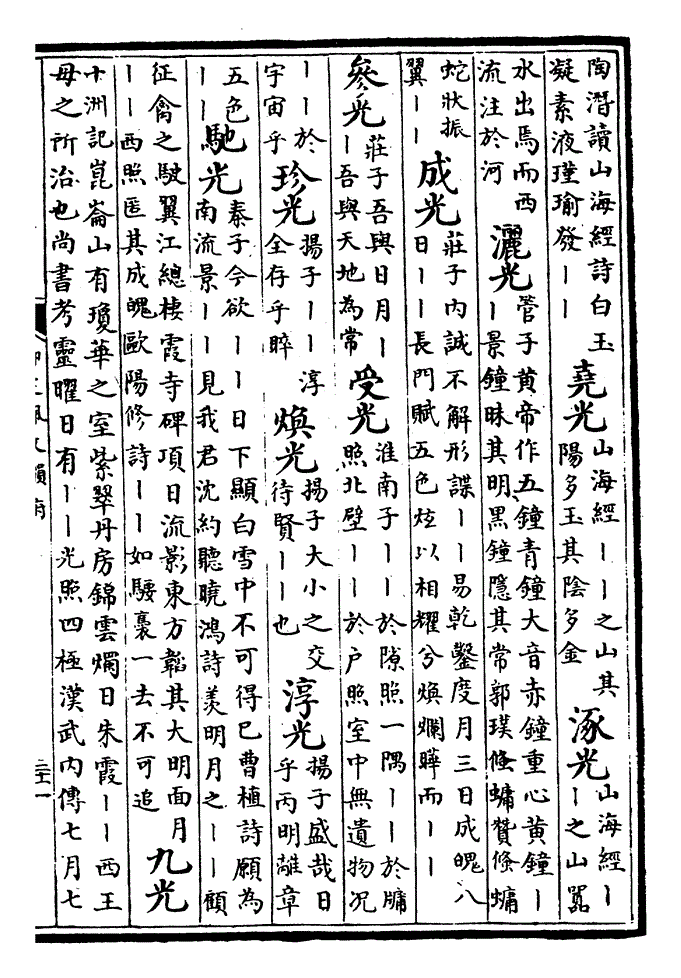 陶潛讀山海經詩白玉
凝素液瑾瑜發丨丨
堯光
山海經丨丨之山其
陽多玉其陰多金
涿光
山海經丨
丨之山嚻
水出焉而西
流注於河
灑光
管子黃帝作五鐘青鐘大音赤鐘重心黃鐘丨
丨景鐘昧其明黑鐘隱其常郭璞條䗤贊條䗤
蛇狀振
翼丨丨
成光
莊子内誠不解形諜丨丨易乾鑿度月三日成魄八
日丨丨長門賦五色炫以相耀兮煥爛爗而丨丨
參光
莊子吾與日月丨
丨吾與天地為常
受光
淮南子丨丨於隙照一隅丨丨於牖
照北壁丨丨於戶照室中無遺物况
丨丨於
宇宙乎
珍光
揚子丨丨淳
全存乎睟
煥光
揚子大小之交
待賢丨丨也
淳光
揚子盛哉日
乎丙明離章
五色
丨丨
馳光
秦子今欲丨丨日下顯白雪中不可得已曹植詩願為
南流景丨丨見我君沈約聽曉鴻詩羨明月之丨丨顧
征禽之駛翼江總棲霞寺碑項日流影東方韜其大明面月
丨丨西照匿其成魄歐陽修詩丨丨如騕褭一去不可追
九光
十洲記崑崙山有瓊華之室紫翠丹房錦雲燭日朱霞丨丨西王
母之所治也尚書考靈曜日有丨丨光照四極漢武内傳七月七